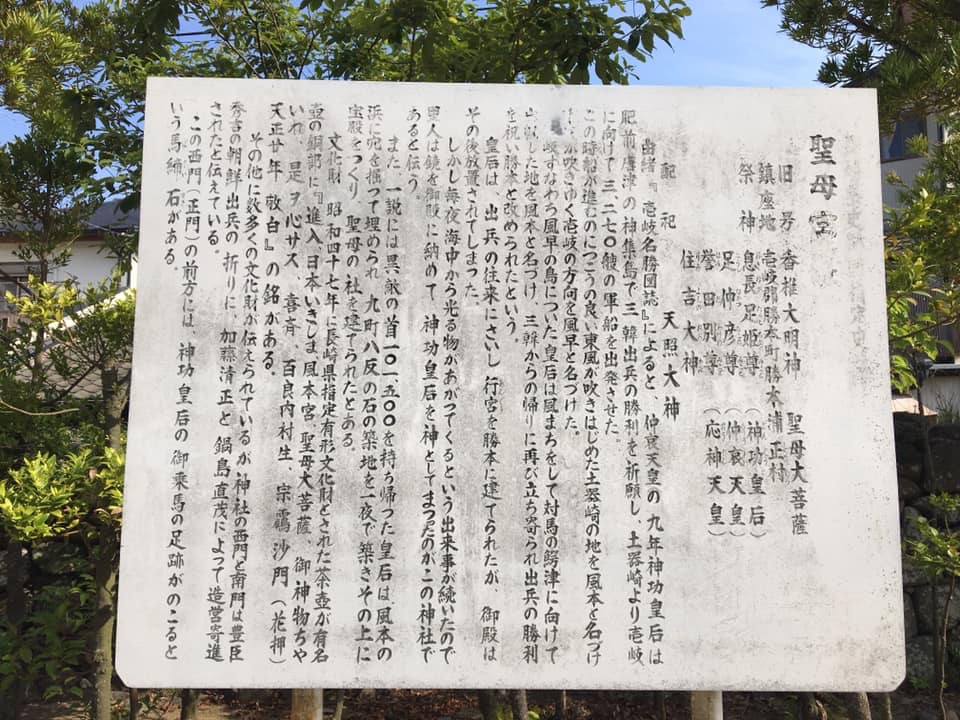 聖母宮
旧号 香椎大明神 聖母大菩薩
鎮座地 壱岐郡勝本町勝本浦正村
祭神 息長足姫尊 (神功皇后)
足仲彦尊 (仲哀天皇)
誉田別尊 (応神天皇)
住吉大神
配祀 天照大神
由緒『壱岐名勝図誌』によると、仲哀天皇の九年神功皇后は
肥前唐津の神集島で三韓出兵の勝利を祈願し、土器崎より壱岐
に向けて三、二七〇艘の軍船を出発させた。
この時船が進むのにつごうの良い東風が吹きはじめた土器崎の地を風本と名づけ
が吹きゆく壱岐の方向を風早と名づけた。
岐すなわち風早の島についた皇后は風まちをして対馬の鰐津に向けて
した地を風本と名づけ、三韓からの帰りに再び立ち寄られ出兵の勝利
を祝い勝本と改められたという。
皇后は、出兵の往来にさいし、行宮を勝本に建てられたが、御殿は
その後放置されてしまった。
しかし毎夜、海中から光る物があがってくるという出来事が続いたので
里人は鏡を御殿に納めて、神功皇后を神としてまつったのがこの神社で
あると伝う。
また、一説には異敵の首一〇一、五〇〇を持ち帰った皇后は、風本の
浜に穴を掘って埋められ、九町八反の石の築地を一夜で築きその上に
宝殿をつくり、聖母の社を建てられたとある。
文化財 昭和四十七年に長崎県指定有形文化財とされた茶壺が有名
壺の銅部に『進入、日本いきしま風本宮、聖母大菩薩、御神物ちや
いれ、是ヲ心サス 喜斉 百良内村生、宗靏、沙門(花押)
天正廿年 敬白』の銘がある。
その他に数多くの文化財が伝えられているが神社の西門と南門は豊臣
秀吉の朝鮮出兵の折りに、加藤清正と鍋島直茂によって造営寄進
されたと伝えている。
この西門(正門)の前方には、神功皇后の御乗馬の足跡がのこると
いう馬締石がある。